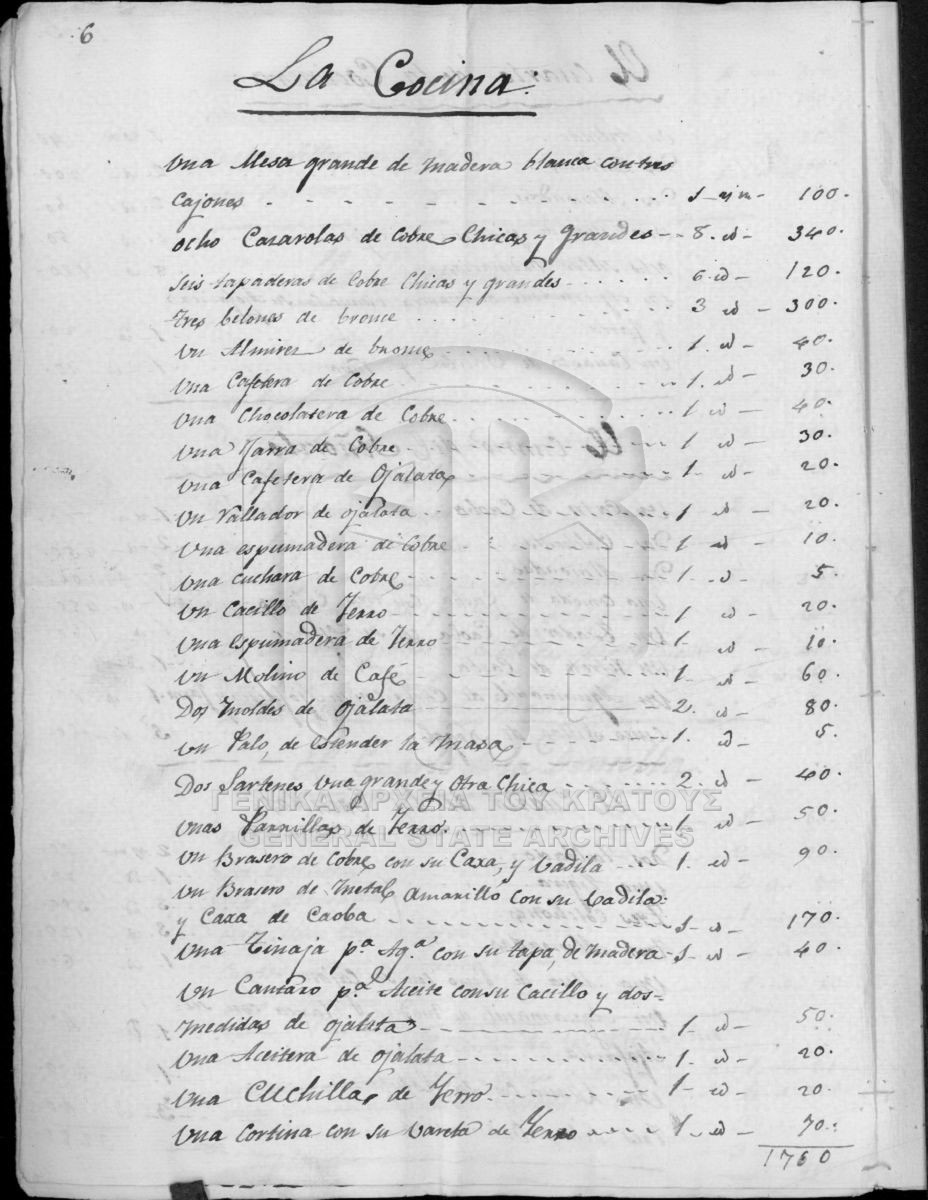 6
La Cocina.
Una Mesa grande de madera blanca con tres
Cajones - - - - - - - 1 - 100.
ocho Cazarolas de Cobre Chicas y grandes - - 8. id - 340.
seis tapaderas de Cobre Chicas y grandes - . . . . 6. id - 120.
tres belones de bronce . . . . . . . . 3 id - 300.
Un Almirez de bronce . . . . . . . 1. id - 40.
Una Cafetera de Cobre . . . . . . . 1. id - 30.
Una Chocolatera de Cobre . . . . . . . 1 id - 40.
Una Jarra de Cobre - - - - 1 id - 30.
Una Cafetera de Ojalata - - - - 1 - id 20.
Un Rallador de ojalata . . - - - 1 id - 20.
Una espumadera de Cobre - - - - 1 id - 10.
Una cuchara de Cobre - - - - - - 1. id - 5.
Un Cacillo de Ferro - - - - - - 1 id - 20.
Una espumadera de Ferro - - - - - 1. id - 10.
Un Molino de Café - - - - - 1. id - 60.
Dos moldes de ojalata - - - - - 2. id - 80.
Un Palo, de estender la masa - - - - - 1. id - 5.
Dos Sartenes, Una grande y Otra Chica . . . . . . 2. id - 40.
ΓΕΝΙΚΑ ΑΡΧΕΙΑ ΤΟΥ ΚΡΑΤΟΥΣ
Unas Parrillas de Ferro. . . . . . . 1 id - 50.
GENERAL STATE ARCHIVES
Un Brasero de Cobre con su Caxa, y badila - . . . 1. id - 90.
Un Brasero de metal Amarillo con su badila
y Caxa de Caoba - - - - - - 1 - id - 170.
Una Tinaja pa. Aga. con su tapa, de madera - 1 - id - 40.
Un Cantaro pa. Aceite con su Cacillo y dos-
medidas de ojalata - - - - - - 1. id - 50.
Una Aceitera de ojalata - - - - - - 1. id - 20.
Una Cuchilla, de Ferro. - - - - - - 1 - id - 20.
Una Cortina con su bareta de Ferro . . . . 1. id - 70.
1760